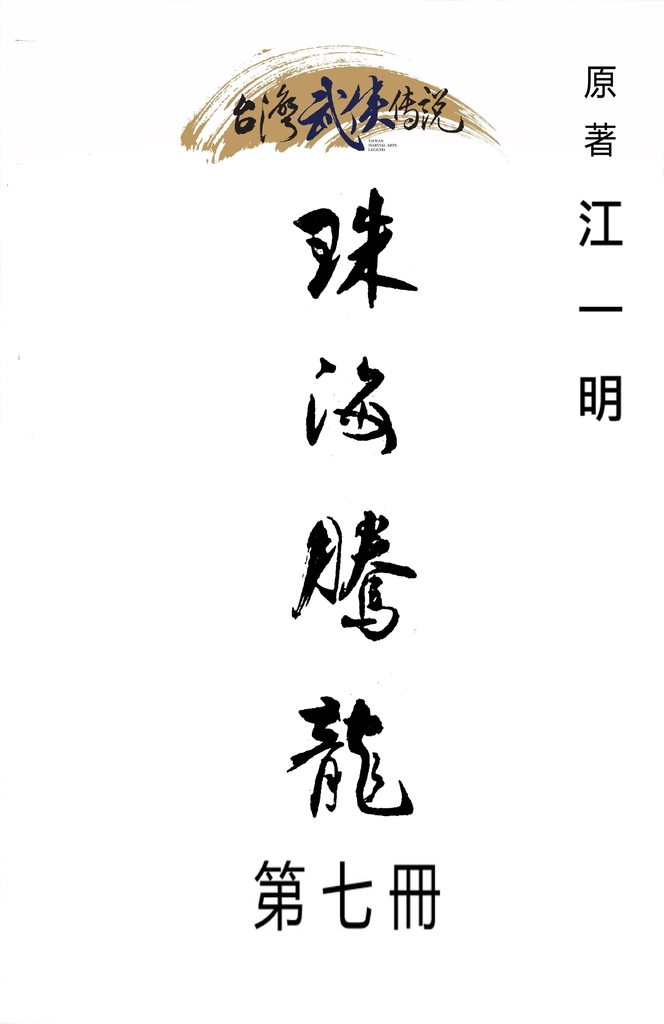 台灣武俠传説
TAIWAN
MARTIAL ARTS
LEGEND
原著 江一明
珠海騰龍
第七冊